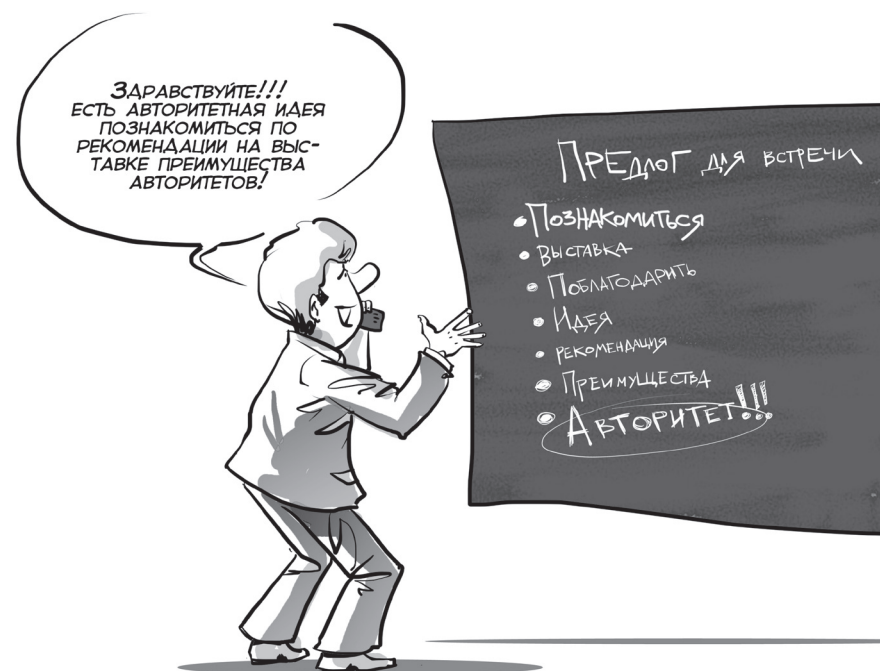 Здравствуйте!!!
есть авторитетная идея
познакомиться по
рекомендации на выс-
тавке преимущества
авторитетов!
Предлог для встречи
• Познакомиться
• Выставка
• Поблагодарить
• Идея
• рекомендация
• Преимущества
• Авторитет!!!